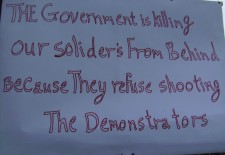 THE Government is killing
our solider's From Behind
Because They refuse shooting
The Demonstrators